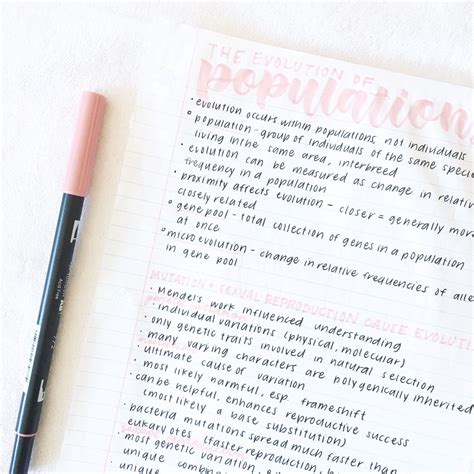 THE EVOLUTION OF
population
• evolution occurs within populations, not individuals
° population - group of individuals of the same spec
living in the same area, interbreed
• evolution can be measured as change in relative
frequency in a population
• proximity affects evolution - closer = generally more
closely related
° gene pool - total collection of genes in a population
at once
° micro evolution - change in relative frequencies of alle
in gene pool
MUTATION + SEXUAL REPRODUCTION CAUSE EVOLUTI
• Mendel's work influenced understanding
• individual variations (physical, molecular)
• only genetic traits involved in natural selection
• many varying characters are polygenically inherited
ultimate cause of variation
• most likely harmful, esp. frameshift
• can be helpful, enhances reproductive success
(most likely a base substitution)
• bacteria mutations spread much faster than
eukaryotes (faster reproduction,
• most genetic variation,
unique combin
unique